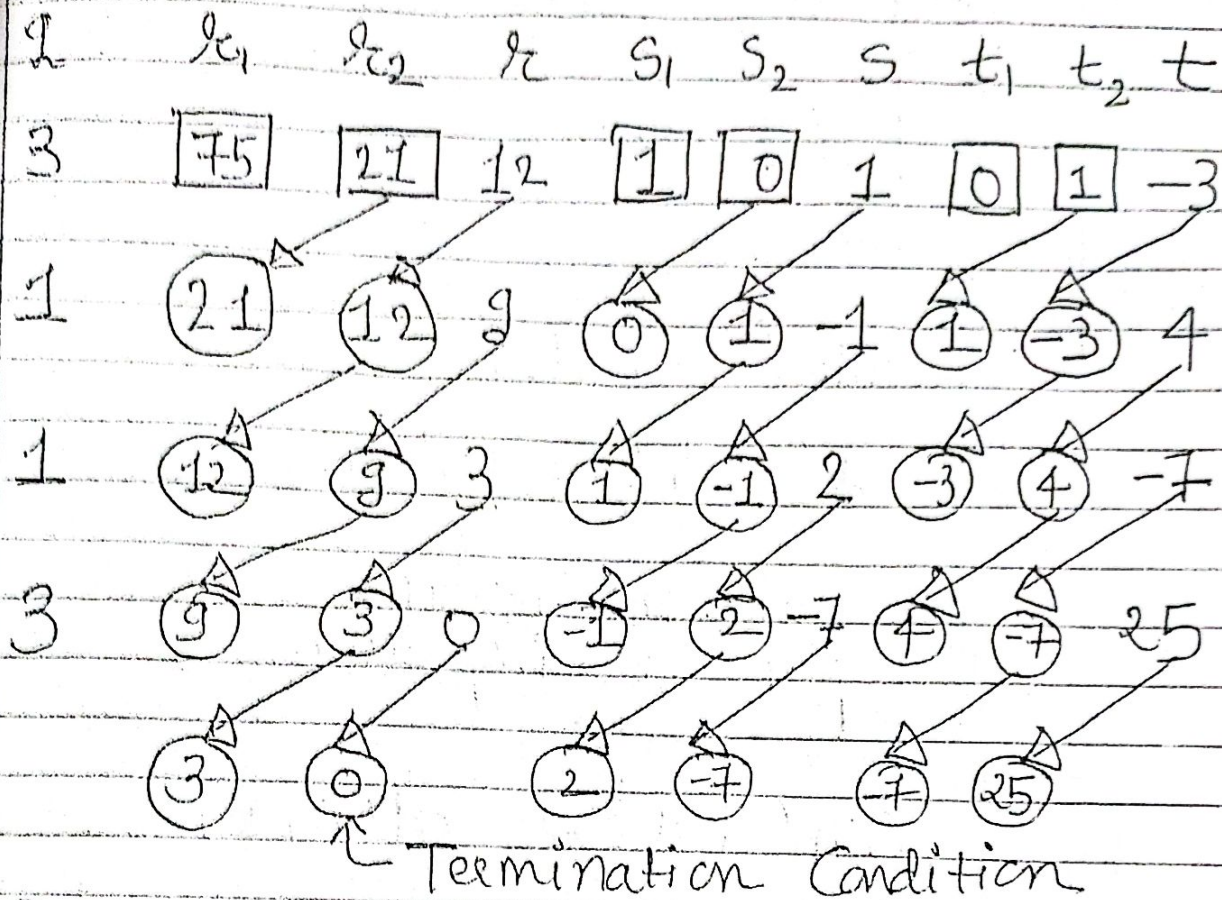 q r₁ r₂ r S₁ S₂ S t₁ t₂ t
3 75 21 12 1 0 1 0 1 -3
1 21 12 9 0 1 -1 1 -3 4
1 12 9 3 1 -1 2 -3 4 -7
3 9 3 0 -1 2 -7 4 -7 25
3 0 2 -7 -7 25
Termination Condition